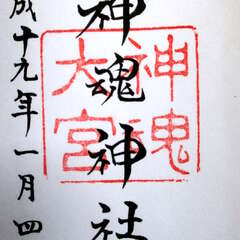 神魂神社
神魂
大宮
成十九年一月四